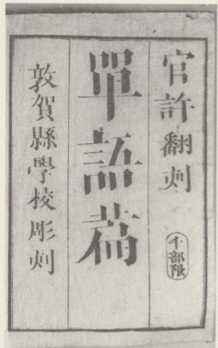 官許翻刻
千部限
單語篇
敦賀縣學校彫刻